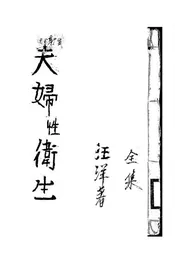 夫婦性衛生
汪洋著
全集